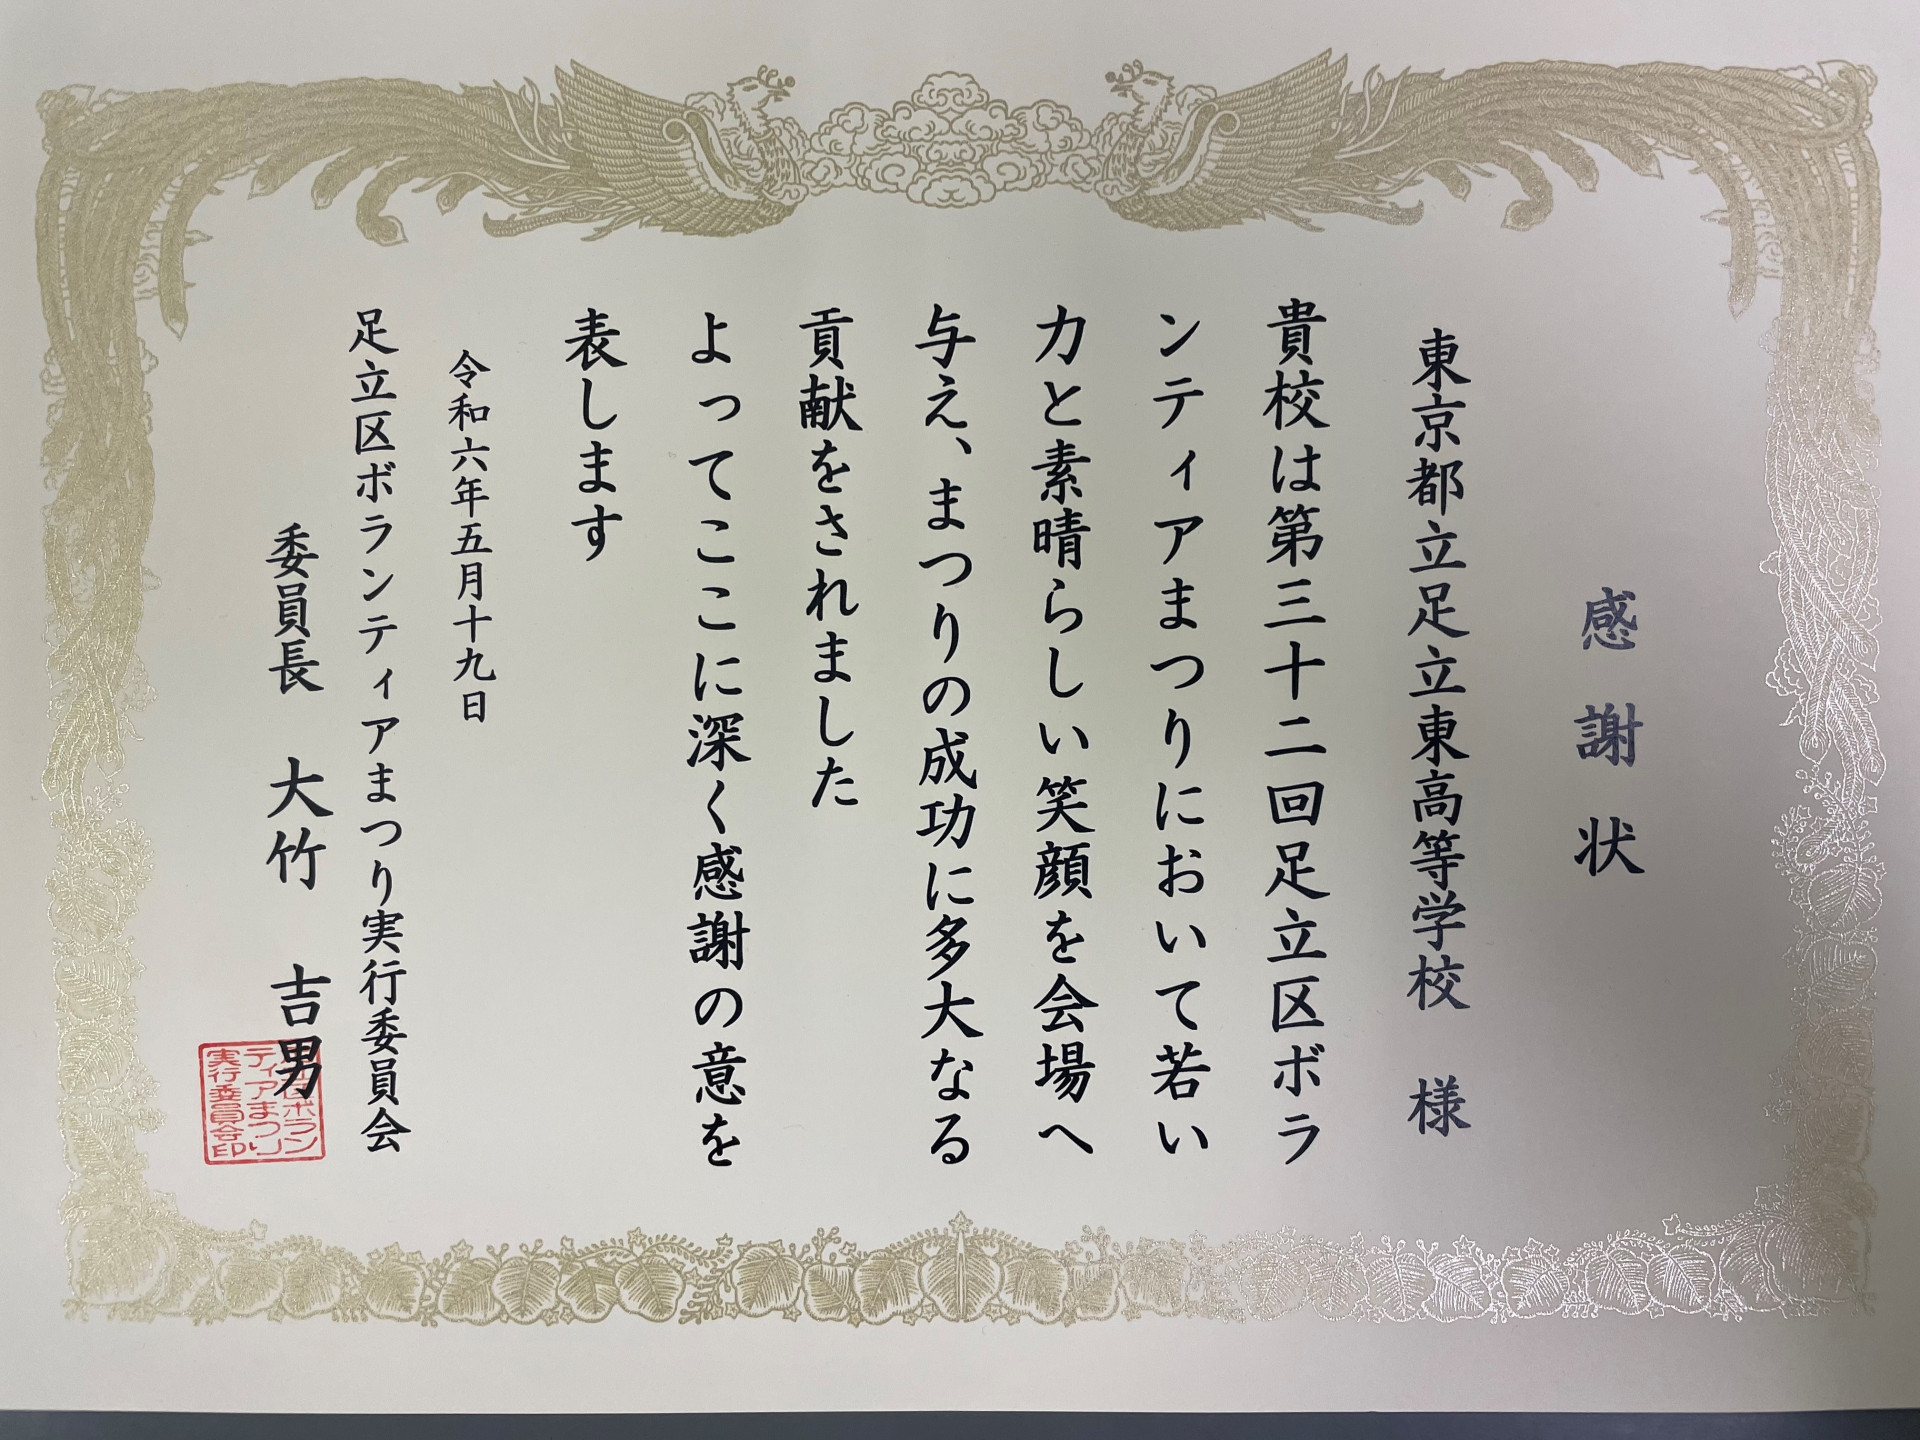 感謝状
東京都立足立東高等学校 様
貴校は第三十二回足立区ボラ
ンティアまつりにおいて若い
力と素晴らしい笑顔を会場へ
与え、まつりの成功に多大なる
貢献をされました
よってここに深く感謝の意を
表します
令和六年五月十九日
足立区ボランティアまつり実行委員会
委員長 大竹 吉男
ボラン
ティアまつり
実行委員会印